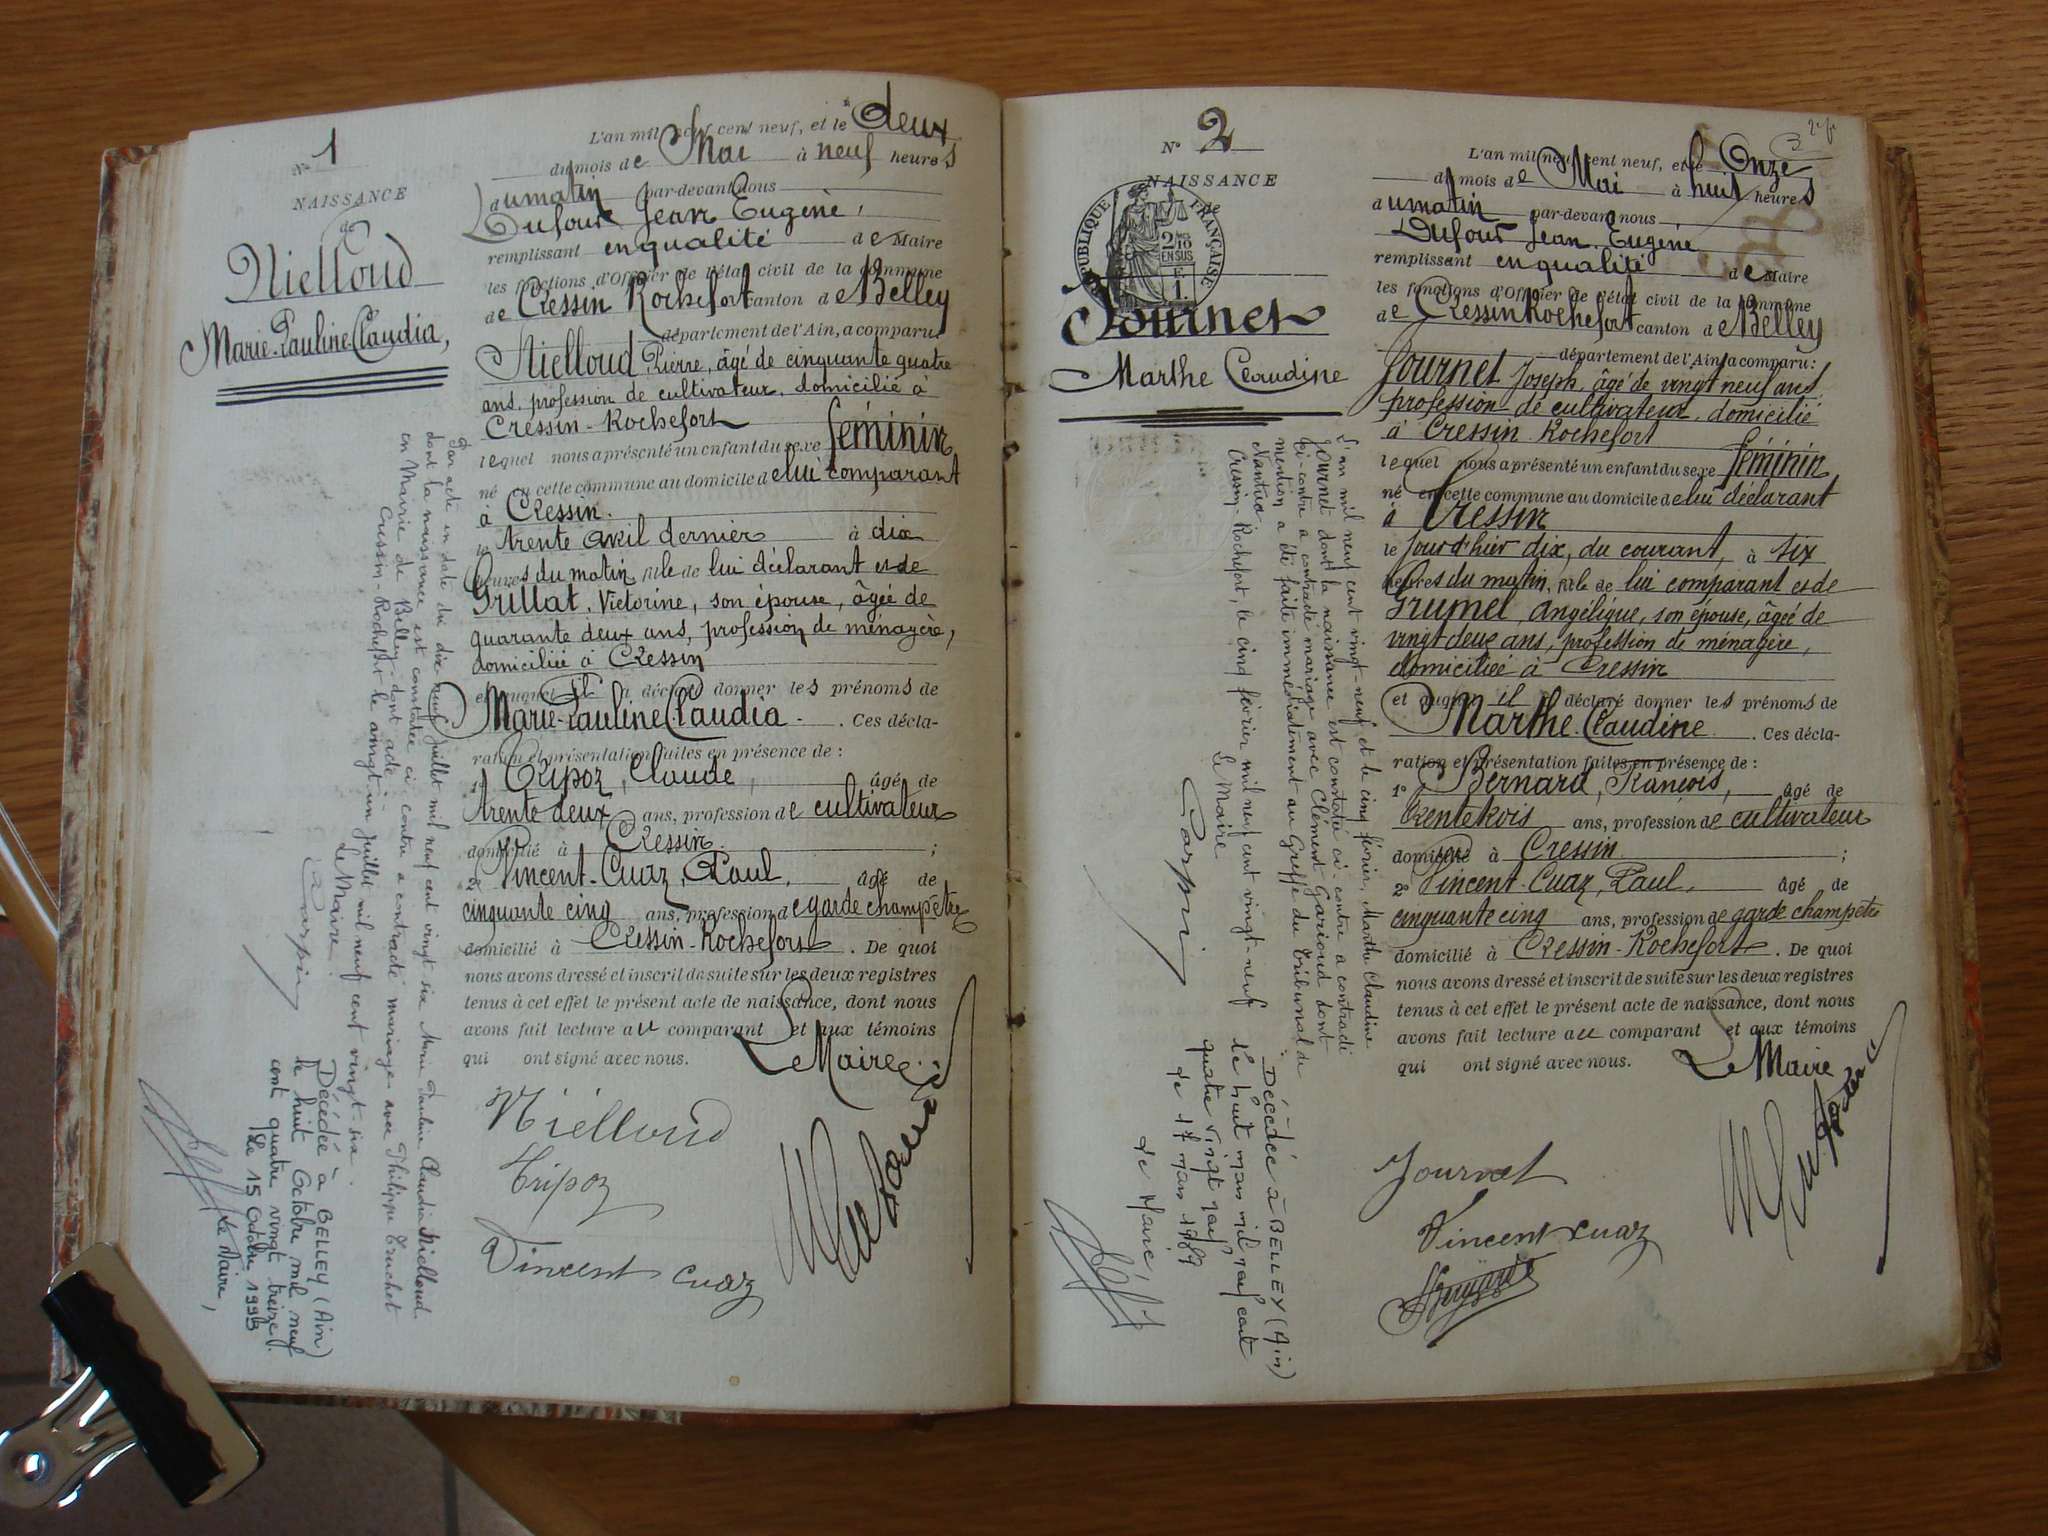 N° 1
NAISSANCE
de
Nielloud
Marie-Pauline Claudia,
L'an mil neuf cent neuf, et le deux
du mois de Mai à neuf heures
du matin par-devant nous
Dufour Jean Eugène,
remplissant en qualité de Maire
les fonctions d'Officier de l'état civil de la commune
de Cressin Rochefort canton de Belley
département de l'Ain, a comparu
Nielloud, Pierre, âgé de cinquante quatre
ans, profession de cultivateur, domicilié à
Cressin-Rochefort
lequel nous a présenté un enfant du sexe féminin
né en cette commune au domicile de lui comparant
à Cressin.
le trente avril dernier à dix
heures du matin, fille de lui déclarant et de
Grillat, Victorine, son épouse, âgée de
quarante deux ans, profession de ménagère,
domiciliée à Cressin
et auquel il a déclaré donner les prénoms de
Marie-Pauline Claudia. Ces décla-
ration et présentation faites en présence de :
1° Tripoz, Claude, âgé de
trente deux ans, profession de cultivateur
domicilié à Cressin ;
2° Vincent-Cuaz, Paul, âgé de
cinquante cinq ans, profession de garde champêtre
domicilié à Cressin-Rochefort. De quoi
nous avons dressé et inscrit de suite sur les deux registres
tenus à cet effet le présent acte de naissance, dont nous
avons fait lecture au comparant et aux témoins
qui ont signé avec nous. Le Maire
Nielloud
Tripoz
Vincent Cuaz
Par acte en date du dix neuf juillet mil neuf cent vingt six Marie Pauline Claudia Nielloud
dont la naissance est constatée ci contre a contracté mariage avec Philippe Truchet
en Mairie de Belley dont acte
Cressin-Rochefort le vingt-un juillet mil neuf cent vingt-six.
Le Maire
Carpin
Décédée à BELLEY (Ain)
le huit Octobre mil neuf
cent quatre vingt treize.
Le 15 Octobre 1993
Le Maire,
N° 2
NAISSANCE
de
RÉPUBLIQUE FRANÇAISE
2/10
EN SUS
Journet
Marthe Claudine
L'an mil neuf cent neuf, et le Onze
du mois de Mai à huit heures
du matin par-devant nous
Dufour Jean Eugène
remplissant en qualité de Maire
les fonctions d'Officier de l'état civil de la commune
de Cressin Rochefort canton de Belley
département de l'Ain, a comparu:
Journet Joseph, âgé de vingt neuf ans
profession de cultivateur, domicilié
à Cressin Rochefort
lequel nous a présenté un enfant du sexe féminin
né en cette commune au domicile de lui déclarant
à Cressin
le jour d'hier dix, du courant, à six
heures du matin, fille de lui comparant et de
Grumel, Angélique, son épouse, âgée de
vingt deux ans, profession de ménagère,
domiciliée à Cressin
et auquel il a déclaré donner les prénoms de
Marthe Claudine. Ces décla-
ration et présentation faites en présence de :
1° Bernard, François, âgé de
trente trois ans, profession de cultivateur
domicilié à Cressin ;
2° Vincent-Cuaz, Paul, âgé de
cinquante cinq ans, profession de garde champêtre
domicilié à Cressin-Rochefort. De quoi
nous avons dressé et inscrit de suite sur les deux registres
tenus à cet effet le présent acte de naissance, dont nous
avons fait lecture au comparant et aux témoins
qui ont signé avec nous. Le Maire
Journet
Vincent Cuaz
L'an mil neuf cent vingt-neuf et le cinq février, Marthe Claudine
Journet dont la naissance est constatée ci-contre a contracté
mariage avec Clément Garioud dont
mention a été faite immédiatement au Greffe du Tribunal de
Nantua.
Cressin-Rochefort, le cinq février mil neuf cent vingt-neuf
Le Maire
Carpin
Décédée à BELLEY (Ain)
le huit mars mil neuf cent
quatre vingt neuf
Le 17 mars 1989
Le Maire,